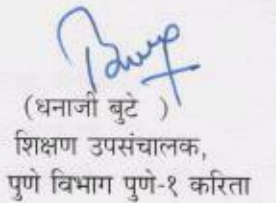 (धनाजी बुटे )
शिक्षण उपसंचालक,
पुणे विभाग पुणे-१ करिता